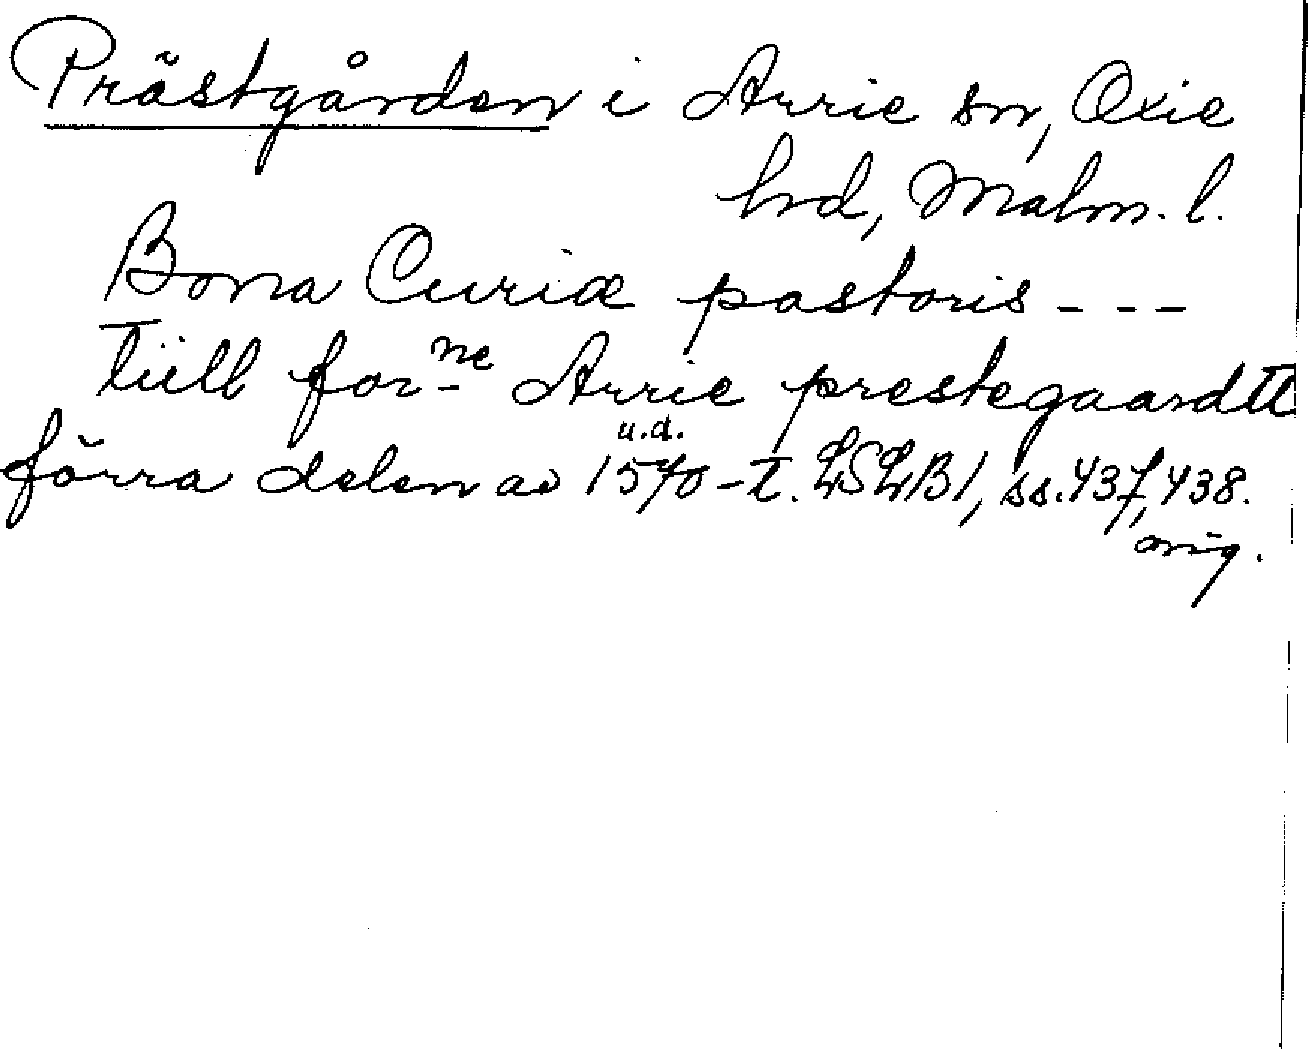 Prästgården i Arrie sn, Oxie
hd, Malm. l.
Bona Curiæ pastoris - - -
tiill for ne Arrie prestegaardtt
u.d.
förra delen av 1570-t. LSLB1, ss. 437, 438.
orig.